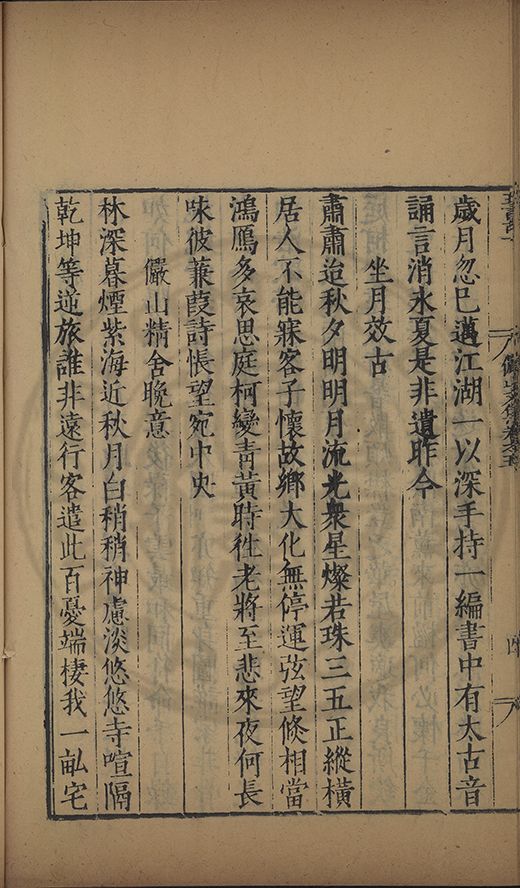 歲月忽已邁江湖一以深手持一編書中有太古音
誦言消永夏是非遺昨今
坐月效古
肅肅迨秋夕明明月流光衆星燦若珠三五正縱橫
居人不能寐客子懷故鄉大化無停運弦望倏相當
鴻鴈多哀思庭柯變青黃時徃老將至悲來夜何長
味彼蒹葭詩悵望宛中央
儼山精舍晚意
林深暮煙紫海近秋月白稍稍神慮淡悠悠寺喧隔
乾坤等逆旅誰非遠行客遣此百憂端棲我一畝宅